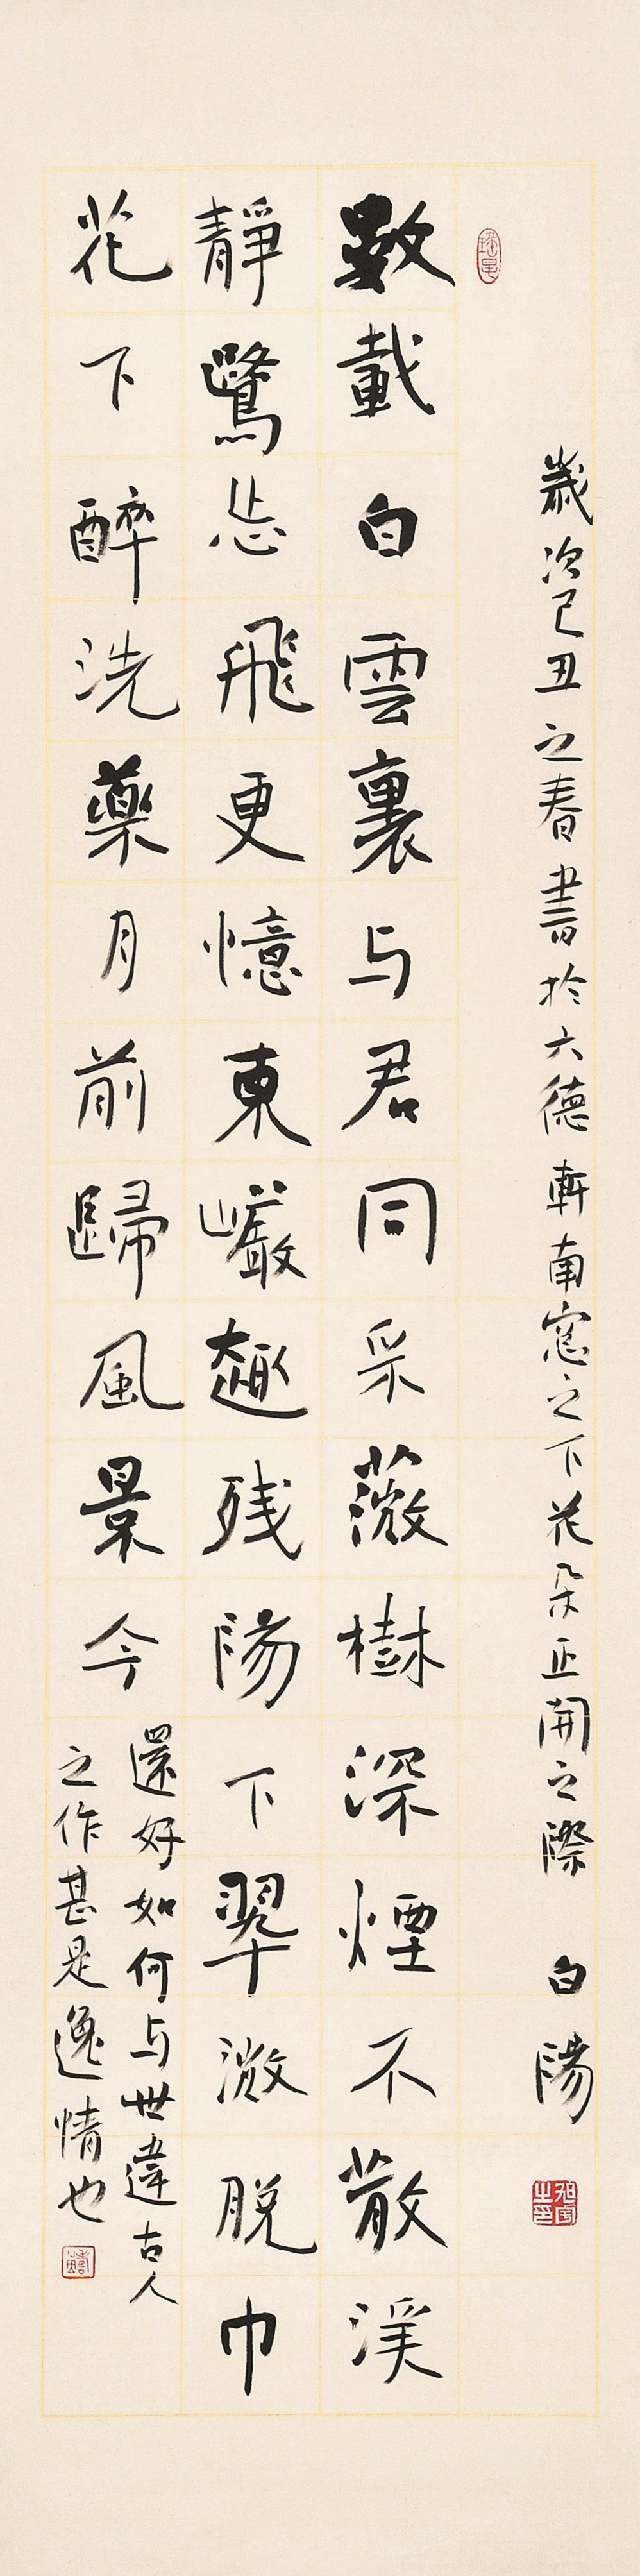 歲次己丑之春書於六德軒南窓之下花朵正開之際 白陽
數載白雲裏与君同采薇樹深煙不散溪
靜鷺忘飛更憶東巖趣残陽下翆微脱巾
花下醉洗藥月前歸風景今
還好如何与世違古人
之作甚是逸情也